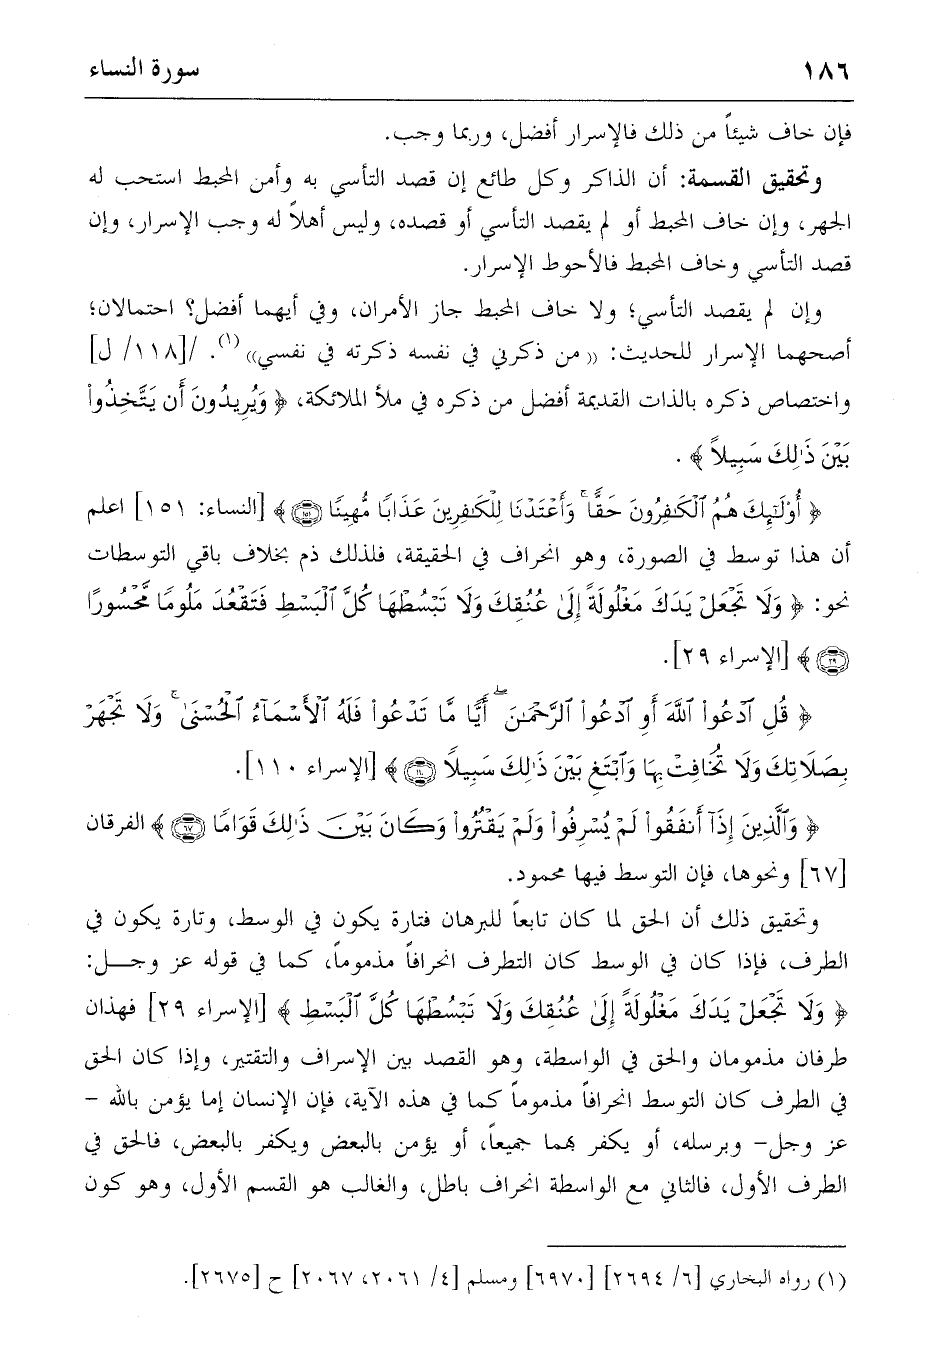 ١٨٦ سورة النساء
فإن خاف شيئاً من ذلك فالإسرار أفضل، وربما وجب.
وتحقيق القسمة: أن الذاكر وكل طائع إن قصد التأسي به وأمن المحبط استحب له
الجهر، وإن خاف المحبط أو لم يقصد التأسي أو قصده، وليس أهلاً له وجب الإسرار، وإن
قصد التأسي وخاف المحبط فالأحوط الإسرار.
وإن لم يقصد التأسي؛ ولا خاف المحبط جاز الأمران، وفي أيهما أفضل؟ احتمالان؛
أصحهما الإسرار للحديث: «من ذكرني في نفسه ذكرته في نفسي» (١). /[١١٨/ ل]
واختصاص ذكره بالذات القديمة أفضل من ذكره في ملأ الملائكة، ﴿ وَيُرِيدُونَ أَن يَتَّخِذُوا۟
بَيْنَ ذَٰلِكَ سَبِيلاً ﴾ .
﴿ أُو۟لَـٰٓئِكَ هُمُ ٱلْكَـٰفِرُونَ حَقًّا ۚ وَأَعْتَدْنَا لِلْكَـٰفِرِينَ عَذَابًا مُّهِينًا ۝١٥١ ﴾ [النساء: ١٥١] اعلم
أن هذا توسط في الصورة، وهو انحراف في الحقيقة، فلذلك ذم بخلاف باقي التوسطات
نحو: ﴿ وَلَا تَجْعَلْ يَدَكَ مَغْلُولَةً إِلَىٰ عُنُقِكَ وَلَا تَبْسُطْهَا كُلَّ ٱلْبَسْطِ فَتَقْعُدَ مَلُومًا مَّحْسُورًا
۝٢٩ ﴾ [الإسراء ٢٩].
﴿ قُلِ ٱدْعُوا۟ ٱللَّهَ أَوِ ٱدْعُوا۟ ٱلرَّحْمَـٰنَ ۖ أَيًّا مَّا تَدْعُوا۟ فَلَهُ ٱلْأَسْمَآءُ ٱلْحُسْنَىٰ ۚ وَلَا تَجْهَرْ
بِصَلَاتِكَ وَلَا تُخَافِتْ بِهَا وَٱبْتَغِ بَيْنَ ذَٰلِكَ سَبِيلًا ۝١١٠ ﴾ [الإسراء ١١٠].
﴿ وَٱلَّذِينَ إِذَآ أَنفَقُوا۟ لَمْ يُسْرِفُوا۟ وَلَمْ يَقْتُرُوا۟ وَكَانَ بَيْنَ ذَٰلِكَ قَوَامًا ۝٦٧ ﴾ الفرقان
[٦٧] ونحوها، فإن التوسط فيها محمود.
وتحقيق ذلك أن الحق لما كان تابعاً للبرهان فتارة يكون في الوسط، وتارة يكون في
الطرف، فإذا كان في الوسط كان التطرف انحرافاً مذموماً، كما في قوله عز وجـل:
﴿ وَلَا تَجْعَلْ يَدَكَ مَغْلُولَةً إِلَىٰ عُنُقِكَ وَلَا تَبْسُطْهَا كُلَّ ٱلْبَسْطِ ﴾ [الإسراء ٢٩] فهذان
طرفان مذمومان والحق في الواسطة، وهو القصد بين الإسراف والتقتير، وإذا كان الحق
في الطرف كان التوسط انحرافاً مذموماً كما في هذه الآية، فإن الإنسان إما يؤمن بالله –
عز وجل– وبرسله، أو يكفر بهما جميعاً، أو يؤمن بالبعض ويكفر بالبعض، فالحق في
الطرف الأول، فالثاني مع الواسطة انحراف باطل، والغالب هو القسم الأول، وهو كون
(١) رواه البخاري [٦/ ٢٦٩٤] [٦٩٧٠] ومسلم [٤/ ٢٠٦١، ٢٠٦٧] ح [٢٦٧٥].